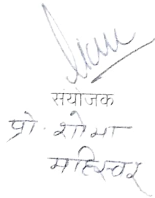 सयोजक
प्रो. शोभा
महिस्वर